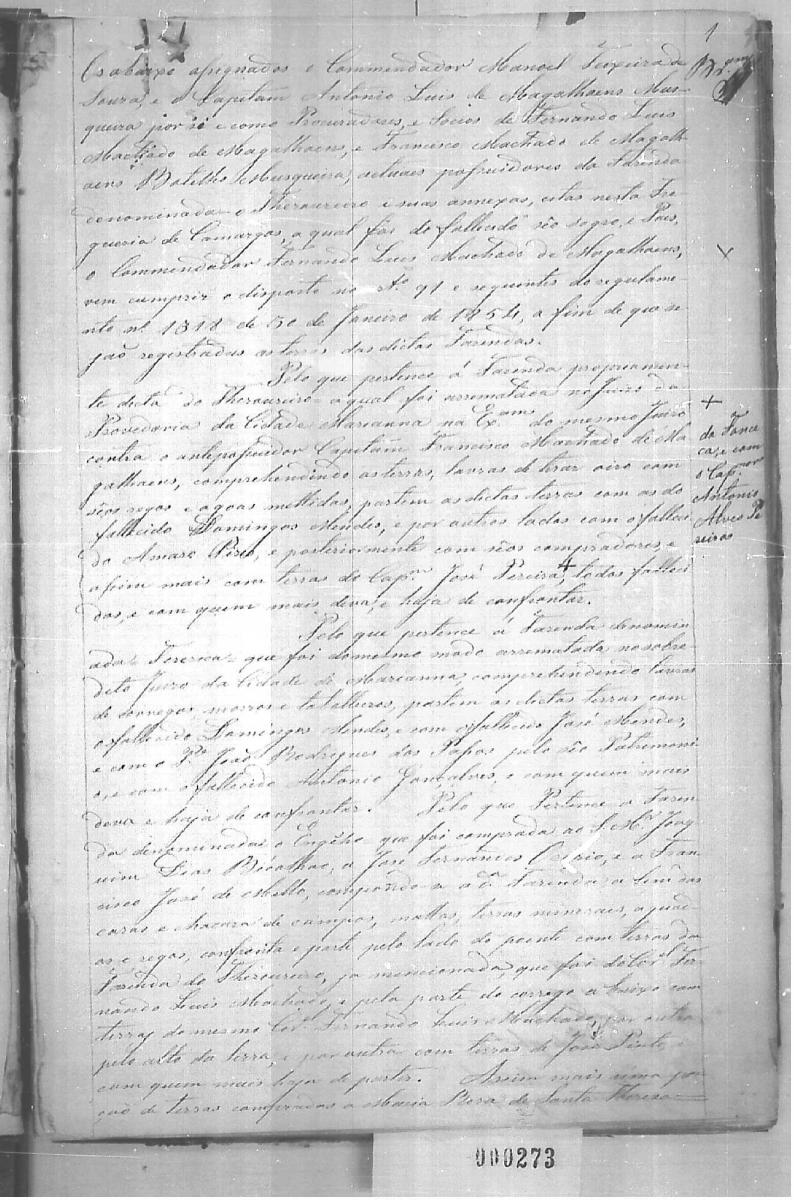 1
Os abaixo assignados o Commendador Manoel Teixeira da
Souza, e o Capitam Antonio Luis de Magalhaens Mus-
queira por si e como Procuradores, e Socios de Fernando Luis
Machado de Magalhaens, e Francisco Machado de Magalh
aens Botelho Musqueira, actuaes possuidores da Fazenda
denominada o Thesoureiro e suas annexas, citas nesta Fre
guesia de Camargos, a qual foi do fallecido seo sogro, e Pai,
o Commendador Fernando Luis Machado de Magalhaens,
vem cumprir o disposto no Ar.º 91 e seguintes do regulame
nto nº 1318 de 30 de Janeiro de 1854, a fim de que se
jão registradas as terras das dictas Fazendas.
Pelo que pertence á Fazenda propriamen-
te dicta do Thesoureiro a qual foi arrematada no Juizo da
Provedoria da Cidade Marianna na Ex.am do mesmo Juizo
contra o antepossuidor Capitam Francisco Machado de Ma
galhaens, comprehendindo as terras, lavras de tirar oiro com
seos regos e agoas mettidas, partem as dictas terras com as do
fallecido Domingos Mendes, e por outros lados com o falleci
do Amaro Pires, e posteriormente com seos compradores, e
assim mais com terras do Cap.m José Pereira + todos falleci
dos, e com quem mais deva, e haja de confrontar.
+
da Fonce
ca, e com
o Cap.
Antonio
Alves Pe
reira
Pelo que pertence á Fazenda denomin
ada que foi do mesmo modo arrematada no sobre
dito Juizo da Cidade de Marianna, comprehendendo lavras
de corregos, morros e taboleiros, partem as dictas terras com
o fallecido Domingos Mendes, e com o fallecido José Mendes,
e com o P.e João Rodrigues dos Passos pelo seo Patrimoni
o, e com o fallecido Antonio Gonçalves, e com quem mais
deva e haja de confrontar. Pelo que Pertence a Fazen
da denominada o Engenho que foi comprada ao S. M.r Joaq
uim Dias Bicalhao, a José Fernandes Ozorio, e a Fran
cisco José de Mello, compondo-se a d.a Fazenda a lem das
cazas e chacara de campos, mattos, terras mineraes, agoa
as e regos, confronta e parte pelo lado do poente com terras da
Fazenda do Thesoureiro, ja mencionada que foi do Cor.el Fer
nando Luis Machado, e pela parte do corrego a baixo com
terras do mesmo Cor.el Fernando Luis Machado, por outra
pelo alto da serra, e por outra com terras de José Pinto e
com quem mais haja de partir. Assim mais uma por
ção de terras compradas a Maria Roza de Santa Thereza
000273